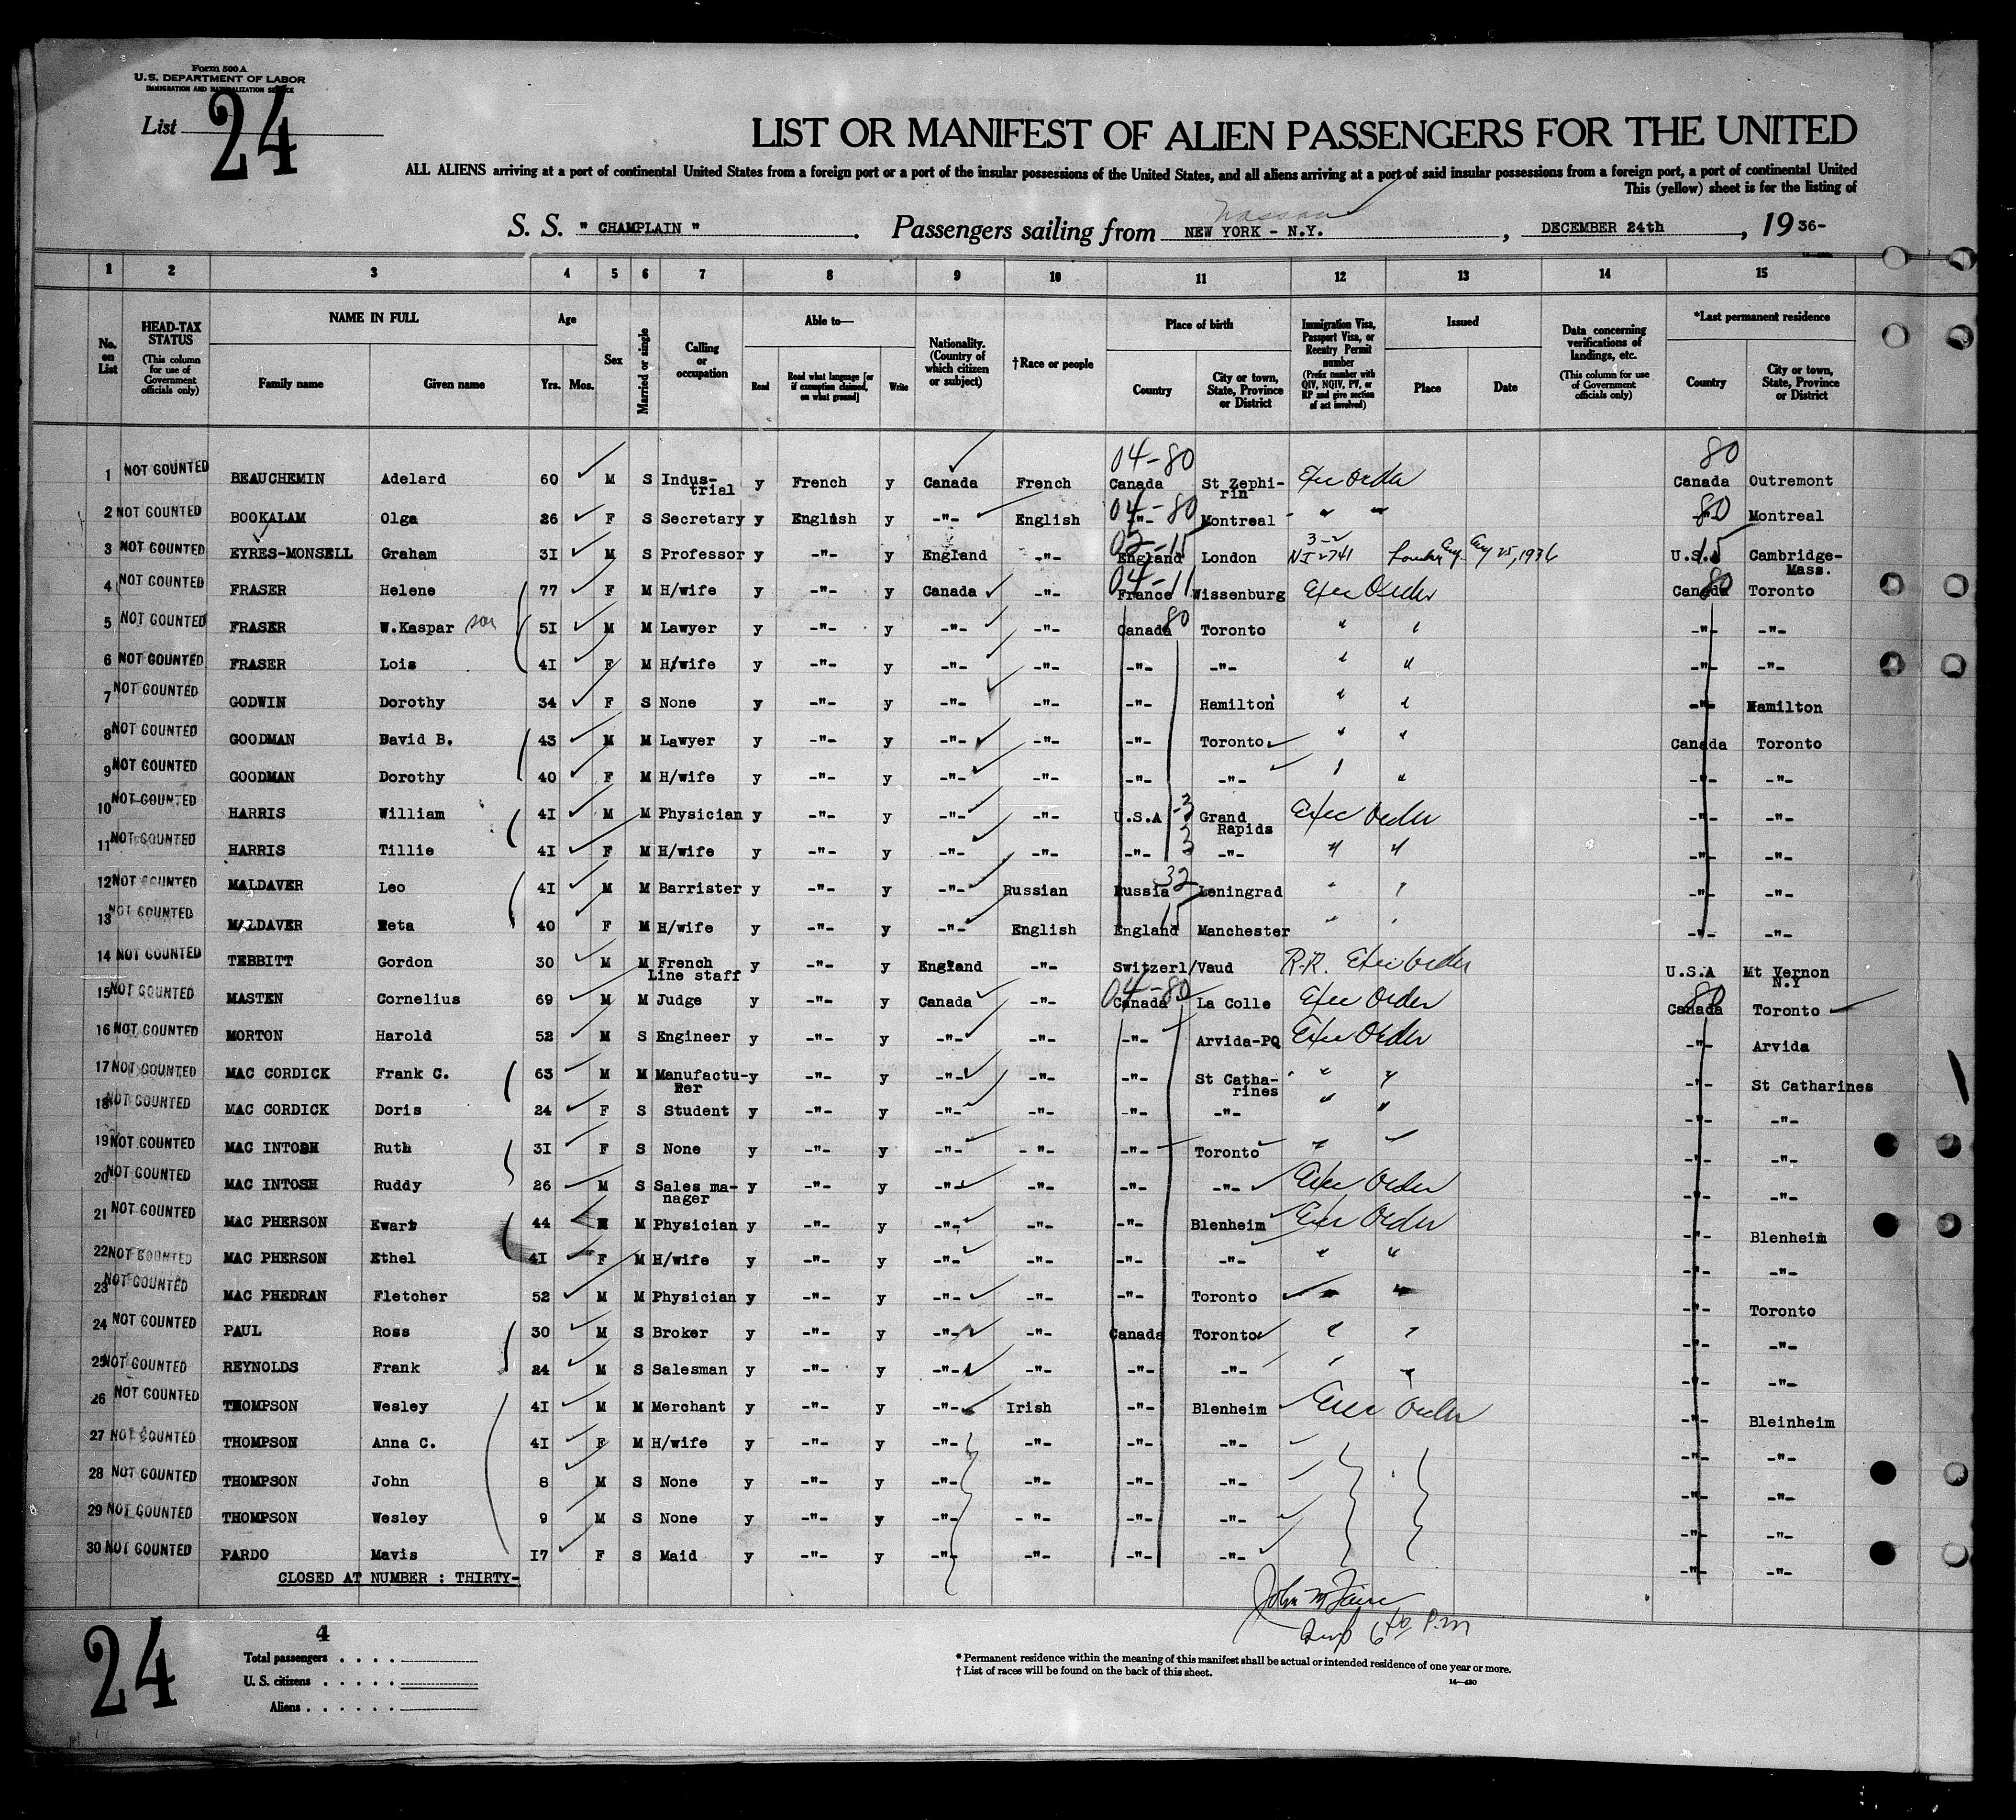 Form 500 A
U.S. DEPARTMENT OF LABOR
IMMIGRATION AND NATURALIZATION SERVICE
List 24
LIST OR MANIFEST OF ALIEN PASSENGERS FOR THE UNITED
ALL ALIENS arriving at a port of continental United States from a foreign port or a port of the insular possessions of the United States, and all aliens arriving at a port of said insular possessions from a foreign port, a port of continental United
This (yellow) sheet is for the listing of
Nassau
S. S. " CHAMPLAIN " . Passengers sailing from NEW YORK - N.Y. , DECEMBER 24th , 19 36-
1 2 3 4 5 6 7 8 9 10 11 12 13 14 15
No. on List
HEAD-TAX STATUS (This column for use of Government officials only)
NAME IN FULL
Family name Given name
Age
Yrs. Mos.
Sex
Married or single
Calling or occupation
Able to—
Read
Read what language [or if exemption claimed, on what ground]
Write
Nationality. (Country of which citizen or subject)
†Race or people
Place of birth
Country
City or town, State, Province or District
Immigration Visa, Passport Visa, or Reentry Permit number (Prefix number with QIV, NQIV, PV, or RP and give section of act involved)
Issued
Place Date
Data concerning verifications of landings, etc. (This column for use of Government officials only)
*Last permanent residence
Country
City or town, State, Province or District
04-80 80
1 NOT COUNTED BEAUCHEMIN Adelard 60 M S Indus-trial y French y Canada French Canada St Zephi-rin Exec Order Canada Outremont
2 NOT COUNTED BOOKALAM Olga 26 F S Secretary y English y -"- English 04-80 -"- Montreal " " 80 -"- Montreal
3 NOT COUNTED EYRES-MONSELL Graham 31 M S Professor y -"- y England -"- 02-15 England London 3-2 NI 2741 London Eng. Aug 25, 1936 15 U.S.A Cambridge-Mass.
4 NOT COUNTED FRASER Helene 77 F M H/wife y -"- y Canada -"- 04-11 France Wissenburg Exec Order 80 Canada Toronto
5 NOT COUNTED FRASER W.Kaspar son 51 M M Lawyer y -"- y -"- -"- Canada 80 Toronto " " -"- -"-
6 NOT COUNTED FRASER Lois 41 F M H/wife y -"- y -"- -"- -"- -"- " " -"- -"-
7 NOT COUNTED GODWIN Dorothy 34 F S None y -"- y -"- -"- -"- Hamilton " " -"- Hamilton
8 NOT COUNTED GOODMAN David B. 43 M M Lawyer y -"- y -"- -"- -"- Toronto " " Canada Toronto
9 NOT COUNTED GOODMAN Dorothy 40 F M H/wife y -"- y -"- -"- -"- -"- " " -"- -"-
10 NOT COUNTED HARRIS William 41 M M Physician y -"- y -"- -"- U.S.A -3 Grand Rapids Exec Order -"- -"-
11 NOT COUNTED HARRIS Tillie 41 F M H/wife y -"- y -"- -"- -"- 3 -"- " " -"- -"-
12 NOT COUNTED MALDAVER Leo 41 M M Barrister y -"- y -"- Russian Russia 32 Leningrad " " -"- -"-
13 NOT COUNTED MALDAVER Meta 40 F M H/wife y -"- y -"- English England 15 Manchester " " -"- -"-
14 NOT COUNTED TEBBITT Gordon 30 M M French Line staff y -"- y England -"- Switzerl/Vaud R.R. Exec Order U.S.A Mt Vernon N.Y
15 NOT COUNTED MASTEN Cornelius 69 M M Judge y -"- y Canada -"- 04-80 Canada La Colle Exec Order 80 Canada Toronto
16 NOT COUNTED MORTON Harold 52 M S Engineer y -"- y -"- -"- -"- Arvida-PQ Exec Order -"- Arvida
17 NOT COUNTED MAC CORDICK Frank C. 63 M M Manufactu-rer y -"- y -"- -"- -"- St Catha-rines " " -"- St Catharines
18 NOT COUNTED MAC CORDICK Doris 24 F S Student y -"- y -"- -"- -"- -"- " " -"- -"-
19 NOT COUNTED MAC INTOSH Ruth 31 F S None y -"- y -"- -"- -"- Toronto " " -"- -"-
20 NOT COUNTED MAC INTOSH Ruddy 26 M S Sales ma-nager y -"- y -"- -"- -"- -"- Exec Order -"- -"-
21 NOT COUNTED MAC PHERSON Ewart 44 M M Physician y -"- y -"- -"- -"- Blenheim Exec Order -"- Blenheim
22 NOT COUNTED MAC PHERSON Ethel 41 F M H/wife y -"- y -"- -"- -"- -"- " " -"- -"-
23 NOT COUNTED MAC PHEDRAN Fletcher 52 M M Physician y -"- y -"- -"- -"- Toronto " " -"- Toronto
24 NOT COUNTED PAUL Ross 30 M S Broker y -"- y -"- -"- Canada Toronto " " -"- -"-
25 NOT COUNTED REYNOLDS Frank 24 M S Salesman y -"- y -"- -"- -"- -"- " " -"- -"-
26 NOT COUNTED THOMPSON Wesley 41 M M Merchant y -"- y -"- Irish -"- Blenheim Exec Order -"- Bleinheim
27 NOT COUNTED THOMPSON Anna C. 41 F M H/wife y -"- y -"- -"- -"- -"- -"- -"-
28 NOT COUNTED THOMPSON John 8 M S None y -"- y -"- -"- -"- -"- -"- -"-
29 NOT COUNTED THOMPSON Wesley 9 M S None y -"- y -"- -"- -"- -"- -"- -"-
30 NOT COUNTED PARDO Mavis 17 F S Maid y -"- y -"- -"- -"- -"- -"- -"-
CLOSED AT NUMBER : THIRTY-
John M
P.M
24
4
Total passengers
U.S. citizens
Aliens
* Permanent residence within the meaning of this manifest shall be actual or intended residence of one year or more.
† List of races will be found on the back of this sheet.
14—430